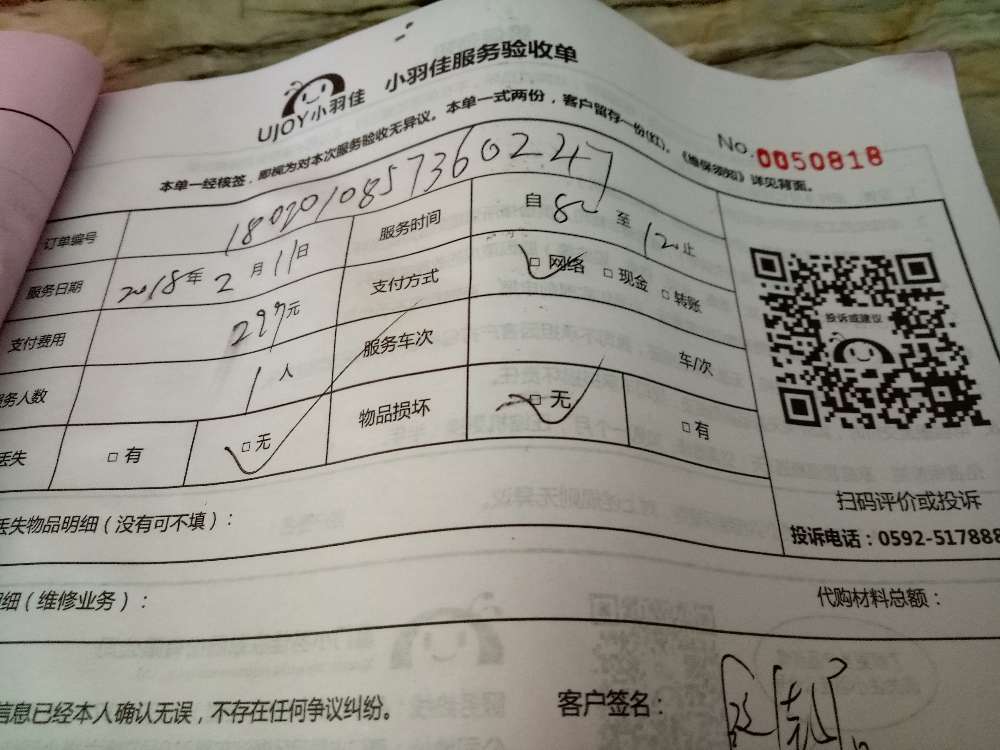 UJOY小羽佳 小羽佳服务验收单
本单一经核签，即视为对本次服务验收无异议。本单一式两份，客户留存一份(红)。《维保须知》详见背面。
No.0050818
订单编号 180201085736 0247
服务日期 2018年2月11日 服务时间 自 8 至 12 止
支付费用 297元 支付方式 □网络 □现金 □转账
务人数 1人 服务车次 车/次
丢失 □有 □无 物品损坏 □无 □有
投诉或建议
扫码评价或投诉
投诉电话：0592-517888
丢失物品明细（没有可不填）：
细（维修业务）： 代购材料总额：
信息已经本人确认无误，不存在任何争议纠纷。 客户签名：